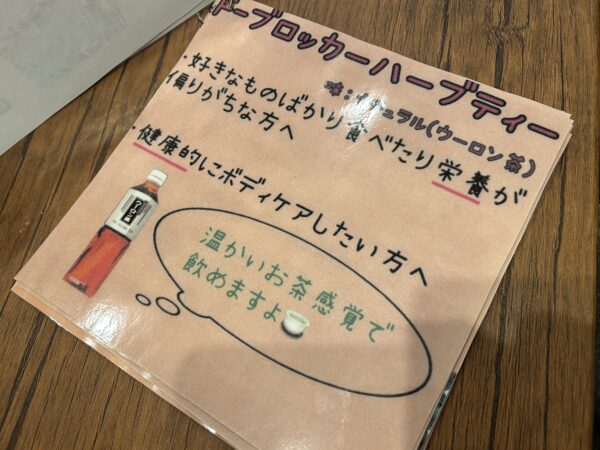 ーブロッカーハーブティー
味:ナチュラル(ウーロン茶)
・好きなものばかり食べたり栄養が
偏りがちな方へ
・健康的にボディケアしたい方へ
温かいお茶感覚で
飲めますよ